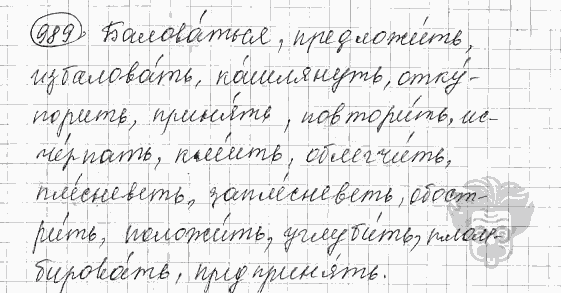 989. Балова́ться, предложи́ть,
избалова́ть, ка́шлянуть, отку́-
порить, приня́ть, повтори́ть, ис-
че́рпать, кле́ить, облегчи́ть,
пле́сневеть, запле́сневеть, обост-
ри́ть, положи́ть, углуби́ть, плом-
бирова́ть, предприня́ть.